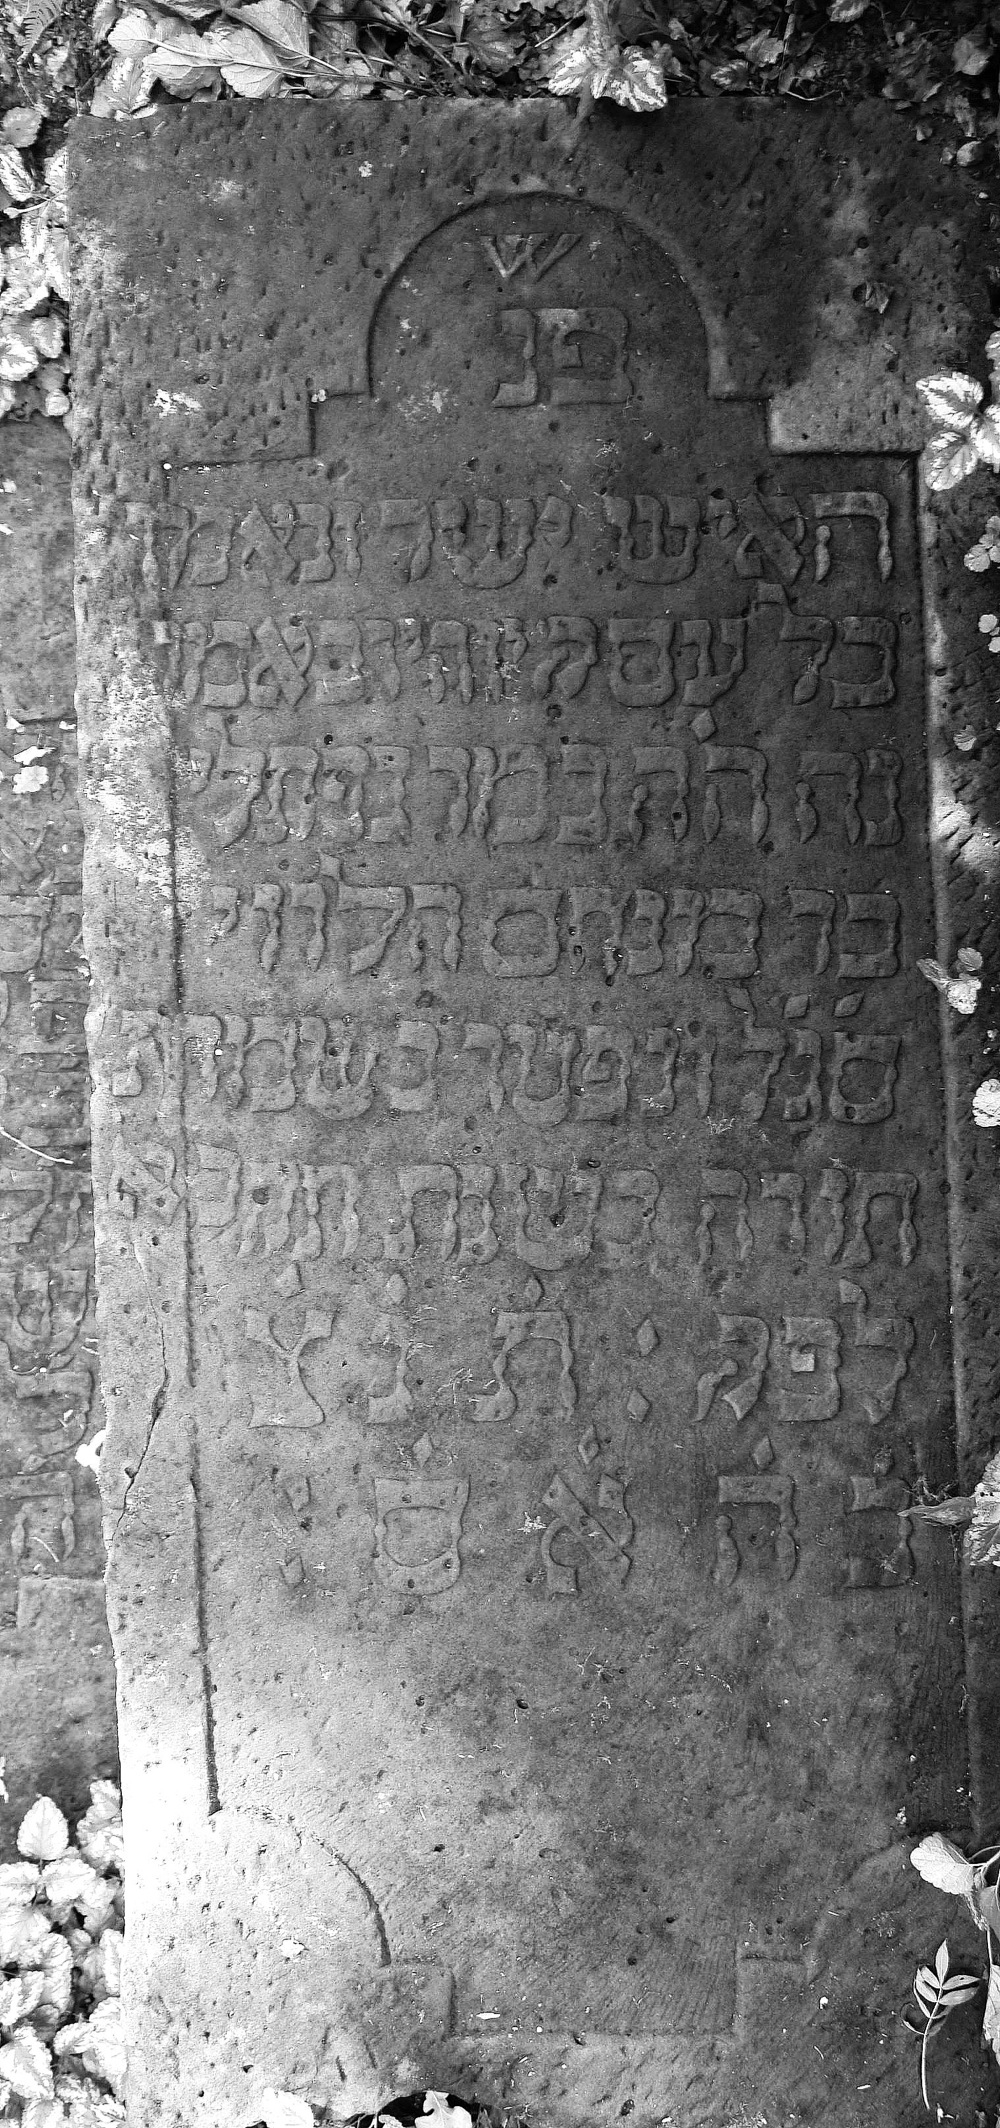 פנ
האיש ישר ונאמן
כל עסקיו היו באמו
נה הה כמר נפתלי
בר מנחם הלוי
סגל ונפטר בשמחת
תורה בשנת
לפק ת נ צ
ב ה א ס